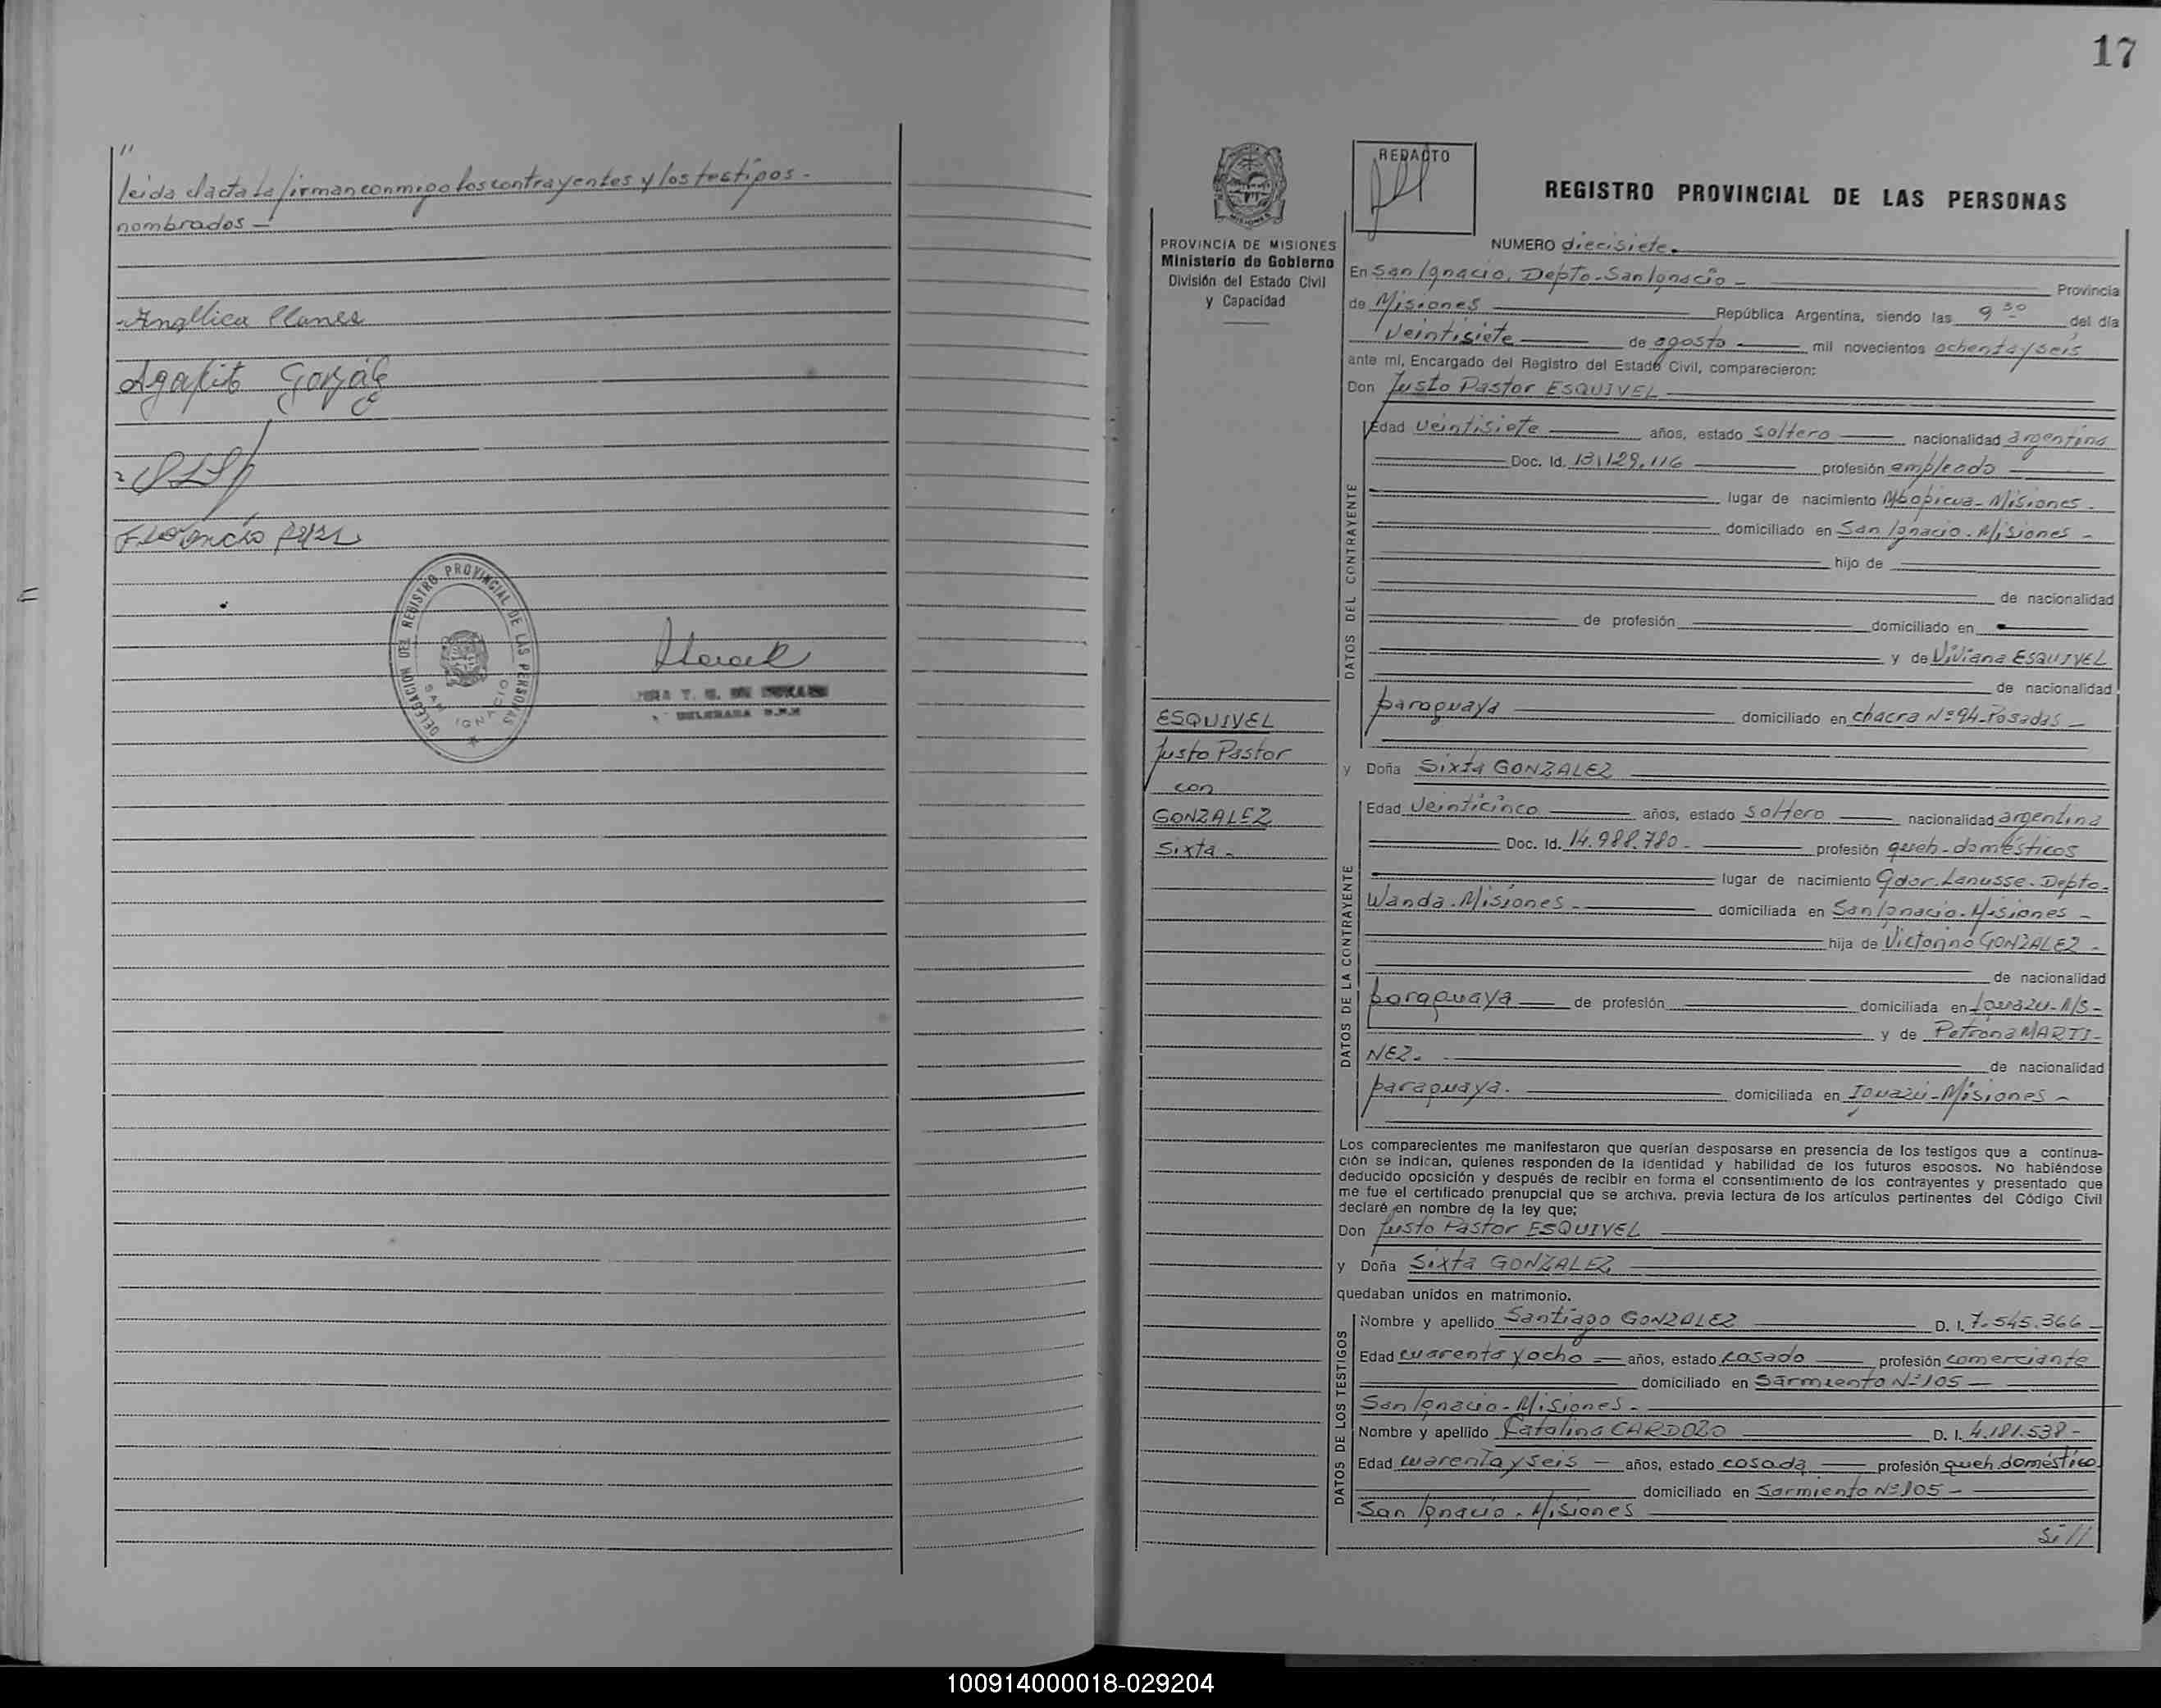 "
leida el acta la firman conmigo los contrayentes y los testigos -
nombrados -
Angélica Llanes
Agapito Gonzále
Florencio
DELEGACION DEL REGISTRO PROVINCIAL DE LAS PERSONAS
SAN IGNACIO
17
REDACTO
REGISTRO PROVINCIAL DE LAS PERSONAS
PROVINCIA DE MISIONES
Ministerio de Gobierno
División del Estado Civil
y Capacidad
ESQUIVEL
Justo Pastor
con
GONZALEZ
Sixta -
NUMERO diecisiete.
En San Ignacio, Depto-San Ignacio - Provincia
de Misiones República Argentina, siendo las 9 30 del día
veintisiete de agosto mil novecientos ochenta y seis
ante mí, Encargado del Registro del Estado Civil, comparecieron:
Don Justo Pastor ESQUIVEL
DATOS DEL CONTRAYENTE
Edad veintisiete años, estado soltero nacionalidad argentina
Doc. Id. 13.129.116 profesión empleado
lugar de nacimiento Mbopicua - Misiones -
domiciliado en San Ignacio - Misiones -
hijo de
de nacionalidad
de profesión domiciliado en
y de Viviana ESQUIVEL
de nacionalidad
paraguaya domiciliado en chacra Nº 94-Posadas -
y Doña Sixta GONZALEZ
DATOS DE LA CONTRAYENTE
Edad veinticinco años, estado soltera nacionalidad argentina
Doc. Id. 14.988.780 - profesión queh-domésticos
lugar de nacimiento Gdor. Lanusse - Depto-
Wanda - Misiones - domiciliada en San Ignacio - Misiones -
hija de Victorino GONZALEZ -
de nacionalidad
paraguaya de profesión domiciliada en Iguazu - M/S -
y de Petrona MARTI-
NEZ - de nacionalidad
paraguaya. domiciliada en Iguazú - Misiones -
Los comparecientes me manifestaron que querían desposarse en presencia de los testigos que a continua-
ción se indican, quienes responden de la identidad y habilidad de los futuros esposos. No habiéndose
deducido oposición y después de recibir en forma el consentimiento de los contrayentes y presentado que
me fue el certificado prenupcial que se archiva, previa lectura de los artículos pertinentes del Código Civil
declaré en nombre de la ley que;
Don Justo Pastor ESQUIVEL
y Doña Sixta GONZALEZ
quedaban unidos en matrimonio.
DATOS DE LOS TESTIGOS
Nombre y apellido Santiago GONZALEZ D. I. 7.545.366 -
Edad cuarenta y ocho - años, estado casado profesión comerciante
domiciliado en Sarmiento Nº 105 -
San Ignacio - Misiones -
Nombre y apellido Catalina CARDOZO D. I. 4.181.538 -
Edad cuarenta y seis - años, estado casada profesión queh. doméstico
domiciliado en Sarmiento Nº 105 -
San Ignacio - Misiones
Si //
100914000018-029204